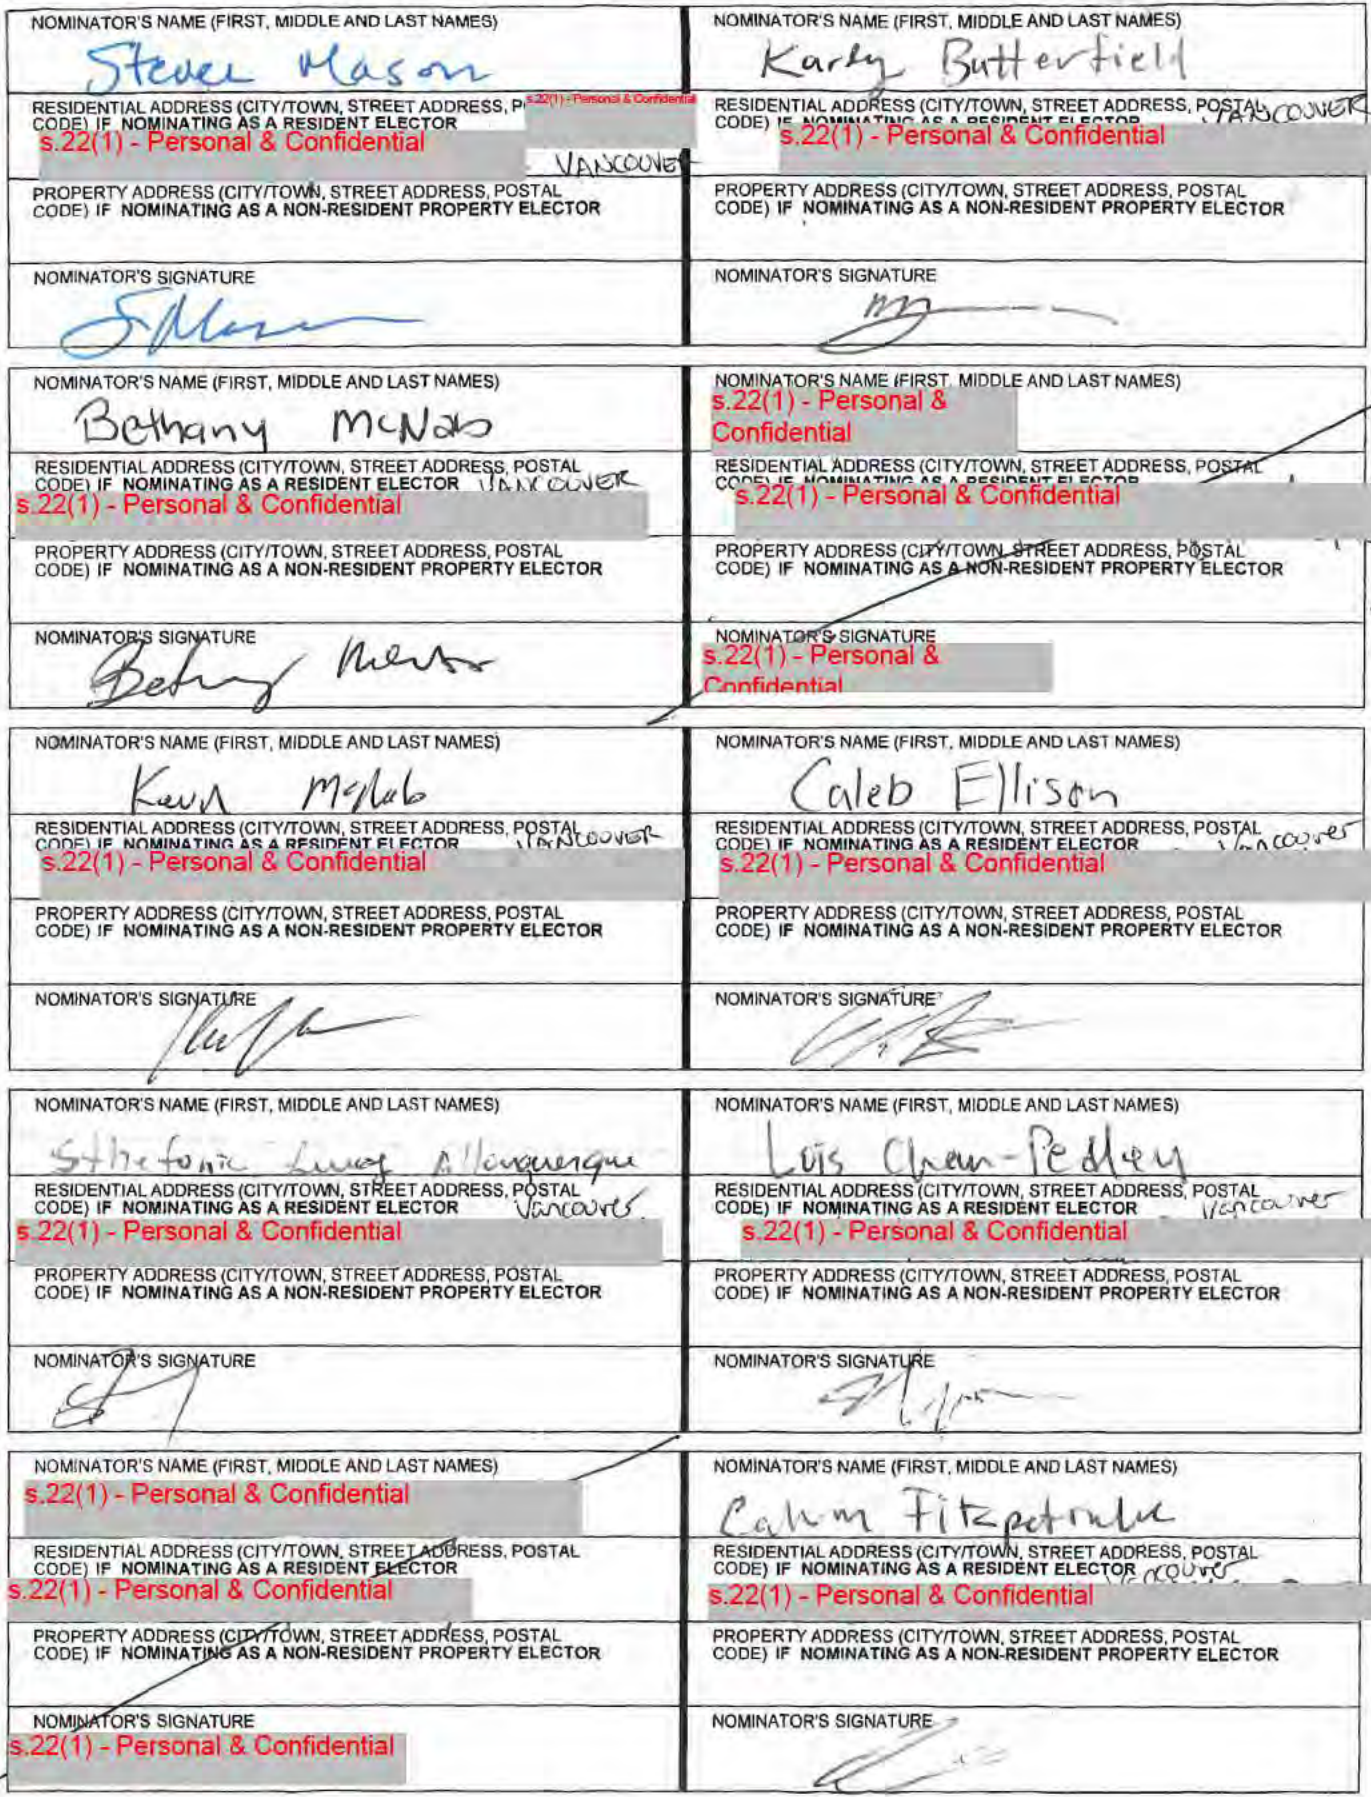 NOMINATOR'S NAME (FIRST, MIDDLE AND LAST NAMES)
Steven Mason
RESIDENTIAL ADDRESS (CITY/TOWN, STREET ADDRESS, P
s.22(1) - Personal & Confidential
CODE) IF NOMINATING AS A RESIDENT ELECTOR
s.22(1) - Personal & Confidential
VANCOUVER
PROPERTY ADDRESS (CITY/TOWN, STREET ADDRESS, POSTAL
CODE) IF NOMINATING AS A NON-RESIDENT PROPERTY ELECTOR
NOMINATOR'S SIGNATURE
NOMINATOR'S NAME (FIRST, MIDDLE AND LAST NAMES)
Butterfield
RESIDENTIAL ADDRESS (CITY/TOWN, STREET ADDRESS, POSTAL
CODE) IF NOMINATING AS A RESIDENT ELECTOR VANCOUVER
s.22(1) - Personal & Confidential
PROPERTY ADDRESS (CITY/TOWN, STREET ADDRESS, POSTAL
CODE) IF NOMINATING AS A NON-RESIDENT PROPERTY ELECTOR
NOMINATOR'S SIGNATURE
NOMINATOR'S NAME (FIRST, MIDDLE AND LAST NAMES)
Bethany McNab
RESIDENTIAL ADDRESS (CITY/TOWN, STREET ADDRESS, POSTAL
CODE) IF NOMINATING AS A RESIDENT ELECTOR VANCOUVER
s.22(1) - Personal & Confidential
PROPERTY ADDRESS (CITY/TOWN, STREET ADDRESS, POSTAL
CODE) IF NOMINATING AS A NON-RESIDENT PROPERTY ELECTOR
NOMINATOR'S SIGNATURE
NOMINATOR'S NAME (FIRST, MIDDLE AND LAST NAMES)
s.22(1) - Personal &
Confidential
RESIDENTIAL ADDRESS (CITY/TOWN, STREET ADDRESS, POSTAL
CODE) IF NOMINATING AS A RESIDENT ELECTOR
s.22(1) - Personal & Confidential
PROPERTY ADDRESS (CITY/TOWN, STREET ADDRESS, POSTAL
CODE) IF NOMINATING AS A NON-RESIDENT PROPERTY ELECTOR
NOMINATOR'S SIGNATURE
s.22(1) - Personal &
Confidential
NOMINATOR'S NAME (FIRST, MIDDLE AND LAST NAMES)
McNab
RESIDENTIAL ADDRESS (CITY/TOWN, STREET ADDRESS, POSTAL
CODE) IF NOMINATING AS A RESIDENT ELECTOR VANCOUVER
s.22(1) - Personal & Confidential
PROPERTY ADDRESS (CITY/TOWN, STREET ADDRESS, POSTAL
CODE) IF NOMINATING AS A NON-RESIDENT PROPERTY ELECTOR
NOMINATOR'S SIGNATURE
NOMINATOR'S NAME (FIRST, MIDDLE AND LAST NAMES)
Caleb Ellison
RESIDENTIAL ADDRESS (CITY/TOWN, STREET ADDRESS, POSTAL
CODE) IF NOMINATING AS A RESIDENT ELECTOR Vancouver
s.22(1) - Personal & Confidential
PROPERTY ADDRESS (CITY/TOWN, STREET ADDRESS, POSTAL
CODE) IF NOMINATING AS A NON-RESIDENT PROPERTY ELECTOR
NOMINATOR'S SIGNATURE
NOMINATOR'S NAME (FIRST, MIDDLE AND LAST NAMES)
RESIDENTIAL ADDRESS (CITY/TOWN, STREET ADDRESS, POSTAL
CODE) IF NOMINATING AS A RESIDENT ELECTOR Vancouver
s.22(1) - Personal & Confidential
PROPERTY ADDRESS (CITY/TOWN, STREET ADDRESS, POSTAL
CODE) IF NOMINATING AS A NON-RESIDENT PROPERTY ELECTOR
NOMINATOR'S SIGNATURE
NOMINATOR'S NAME (FIRST, MIDDLE AND LAST NAMES)
Lois Chan-Pedley
RESIDENTIAL ADDRESS (CITY/TOWN, STREET ADDRESS, POSTAL
CODE) IF NOMINATING AS A RESIDENT ELECTOR Vancouver
s.22(1) - Personal & Confidential
PROPERTY ADDRESS (CITY/TOWN, STREET ADDRESS, POSTAL
CODE) IF NOMINATING AS A NON-RESIDENT PROPERTY ELECTOR
NOMINATOR'S SIGNATURE
NOMINATOR'S NAME (FIRST, MIDDLE AND LAST NAMES)
s.22(1) - Personal & Confidential
RESIDENTIAL ADDRESS (CITY/TOWN, STREET ADDRESS, POSTAL
CODE) IF NOMINATING AS A RESIDENT ELECTOR
s.22(1) - Personal & Confidential
PROPERTY ADDRESS (CITY/TOWN, STREET ADDRESS, POSTAL
CODE) IF NOMINATING AS A NON-RESIDENT PROPERTY ELECTOR
NOMINATOR'S SIGNATURE
s.22(1) - Personal & Confidential
NOMINATOR'S NAME (FIRST, MIDDLE AND LAST NAMES)
Fitzpatrick
RESIDENTIAL ADDRESS (CITY/TOWN, STREET ADDRESS, POSTAL
CODE) IF NOMINATING AS A RESIDENT ELECTOR Vancouver
s.22(1) - Personal & Confidential
PROPERTY ADDRESS (CITY/TOWN, STREET ADDRESS, POSTAL
CODE) IF NOMINATING AS A NON-RESIDENT PROPERTY ELECTOR
NOMINATOR'S SIGNATURE